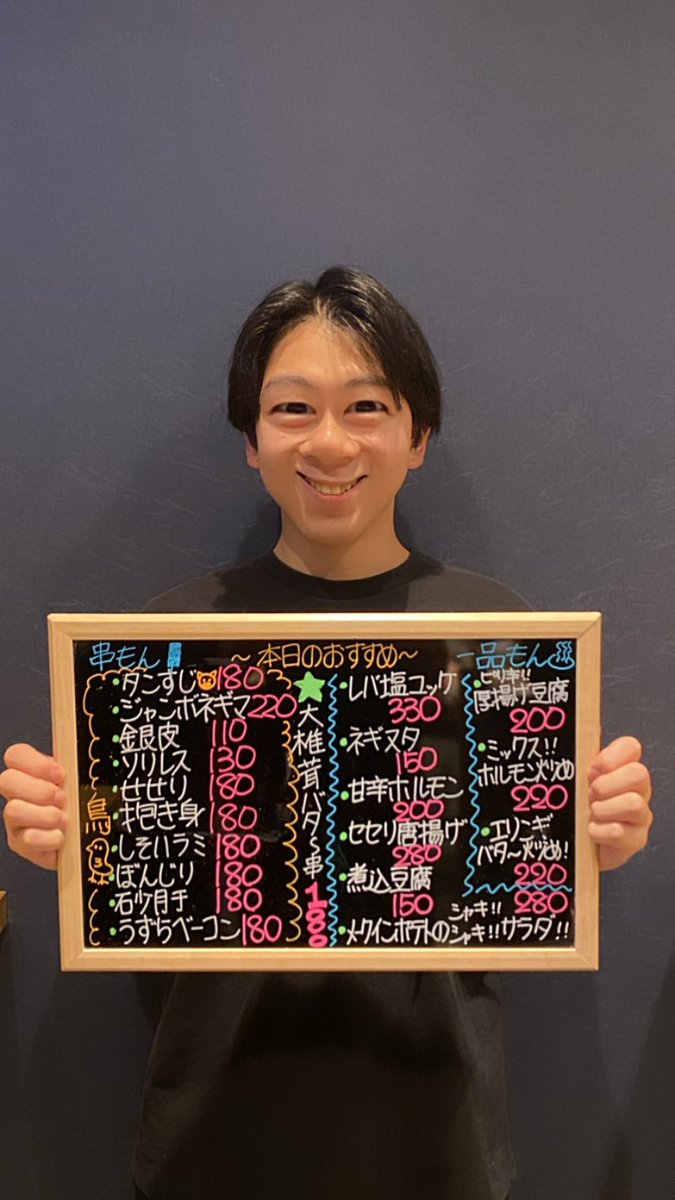 串もん
~本日のおすすめ~
一品もん
・タンすじ 180
・ジャンボネギマ 220
・金銀皮 110
・ソリレス 130
・せせり 180
・抱き身 180
・しそハラミ 180
・ぼんじり 180
・砂肝 180
・うずらベーコン 180
鳥
大椎茸バター串 180
・レバ塩ユッケ
330
・ネギヌタ
150
・甘辛ホルモン
200
・セセリ唐揚げ
280
・煮込豆腐
150
・メークインポテトの シャキ!! シャキ!! サラダ!!
280
・ピリ辛!!
厚揚げ豆腐
200
・ミックス!!
ホルモン炒め
220
・エリンギ
バター炒め!
220